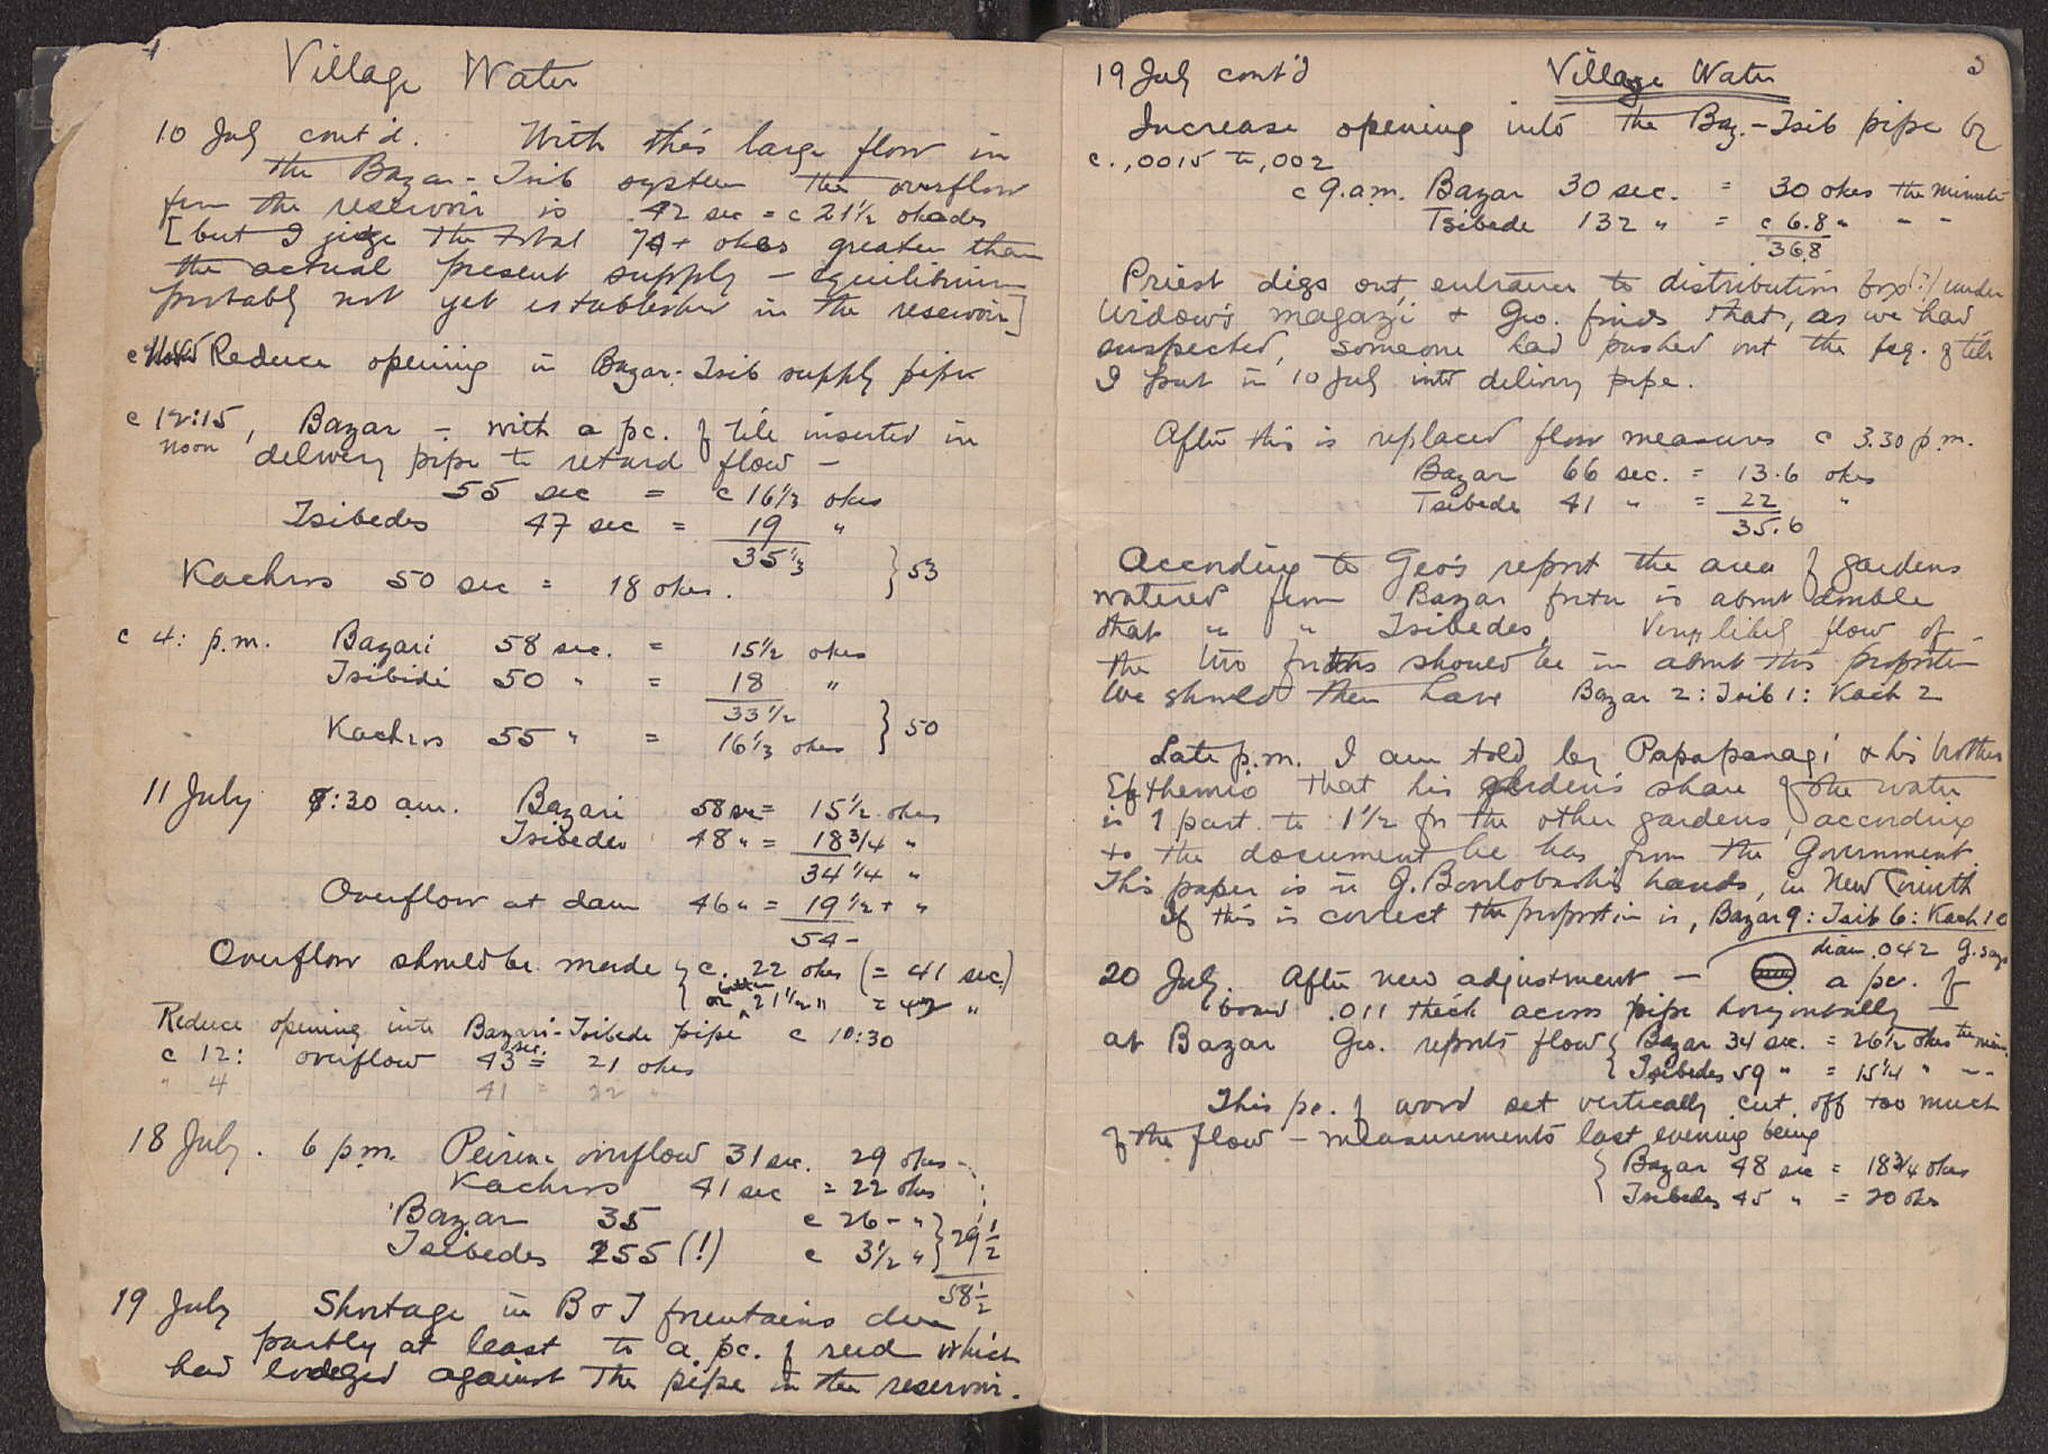 4
Village Water
10 July cont'd. With this large flow in
the Bazar-Tsib system the overflow
from the reservoir is 42 sec = c 21½ okades
[but I judge the total 74+ okes greater than
the actual present supply - equilibrium
probably not yet established in the reservoir]
c Reduce opening in Bazar-Tsib supply pipe
c 12:15, Bazar - with a pc. of tile inserted in
noon delivery pipe to retard flow -
55 sec = c 16⅓ okes
Tsibedes 47 sec = 19 "
35⅓
Kachros 50 sec = 18 okes. } 53
c 4: p.m. Bazari 58 sec. = 15½ okes
Tsibidi 50 " = 18 "
33½
Kachros 55 " = 16⅓ okes } 50
11 July 8:30 a.m. Bazari 58 sec = 15½ okes
Tsibedes 48 " = 18¾ "
34¼ "
Overflow at dam 46 " = 19½+ "
54-
Overflow should be made { c. 22 okes (= 41 sec)
or 21½ " = 42 "
Reduce opening into Bazari-Tsibede pipe c 10:30
c 12: overflow 43 sec. = 21 okes
" 4 41 = 22 "
18 July. 6 p.m. Peirene overflow 31 sec. 29 okes
Kachros 41 sec = 22 okes
Bazar 35 c 26- "
Tsibedes 255 (!) c 3½ " } 29½
58½
19 July Shortage in B & T fountains due
partly at least to a pc. of reed which
had lodged against the pipe in the reservoir.
19 July cont'd Village Water 5
Increase opening into the Baz.-Tsib pipe by
c. ,0015 to ,002
c 9. a.m. Bazar 30 sec. = 30 okes the minute
Tsibede 132 " = c 6.8 " - -
36.8
Priest digs out entrance to distribution box(?) under
Widow's magazi & Geo. finds that, as we had
suspected, someone had pushed out the frg. of tile
I put in 10 July into delivery pipe.
After this is replaced flow measures c 3.30 p.m.
Bazar 66 sec. = 13.6 okes
Tsibede 41 " = 22 "
35.6
According to Geo's report the area of gardens
watered from Bazar fountain is about double
that " " Tsibedes. Very likely flow of
the two fountains should be in about this proportion
We should then have Bazar 2: Tsib 1: Kach 2
Late p.m. I am told by Papapanagi & his brother
Efthemio that his garden's share of the water
is 1 part to 1½ for the other gardens, according
to the document he has from the Government.
This paper is in G. hands, in New Corinth
If this is correct the proportion is, Bazar 9: Tsib 6: Kach 10
diam .042 G. says
20 July. After new adjustment - a pc. of
board .011 thick across pipe horizontally -
at Bazar Geo. reports flow { Bazar 34 sec. = 26½ okes the min.
{ Tsibedes 59 " = 15¼ " - -
This pc. of wood set vertically cut off too much
of the flow - measurements last evening being
{ Bazar 48 sec = 18¾ okes
{ Tsibedes 45 " = 20 okes